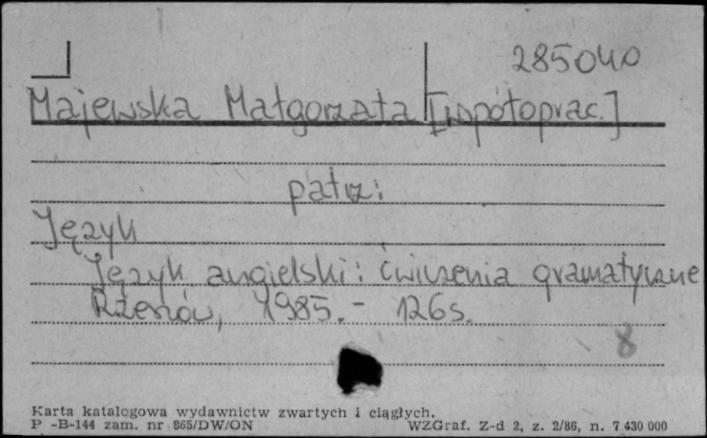 285040
Majewska Małgorzata [współoprac.]
patrz:
Język
Język angielski: ćwiczenia gramatyczne
Rzeszów, 1985. - 126 s.
8
Karta katalogowa wydawnictw zwartych i ciągłych.
P -B-144 zam. nr 865/DW/ON WZGraf. Z-d 2, z. 2/86, n. 7 430 000